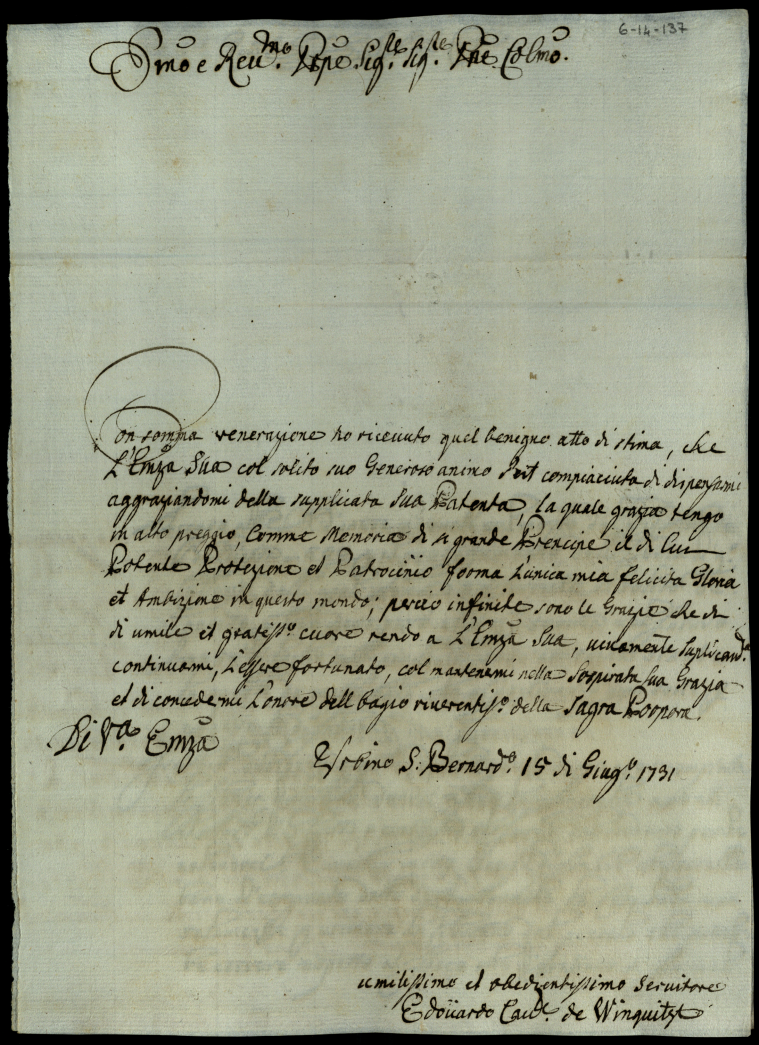 6-14-137
Emo e Reu.mo Pnpe Sig.re Sig.re Pne Colmo.
Con somma venerazione ho riceuuto quel benigno atto di stima, che
L'Emza Sua col solito suo Generoso animo s'è compiaciuta di dispensarmi
aggraziandomi della supplicata Sua Patenta, la quale grazia tengo
in alto preggio, Comme Memoria di si grande Prencipe il di Cui
Potente Protezione et Patrocinio forma L'unica mia felicita Gloria
et Ambizione in questo mondo; percio infinite sono le Grazie che di
di umile et gratiss.o cuore rendo a L'Emza Sua, uiuamente suplicand.a
continuarmi, L'essere fortunato, col mantenermi nella Sospirata Sua Grazia
et di concedermi L'onore dell bagio riuerentiss.o della Sagra Porpora.
Di V.a Emza
Urbino S: Bernard.o 15 di Giug.o 1731
umilissimo et obedientissimo Seruitore
Edoüardo Cau.r de Winquitzt